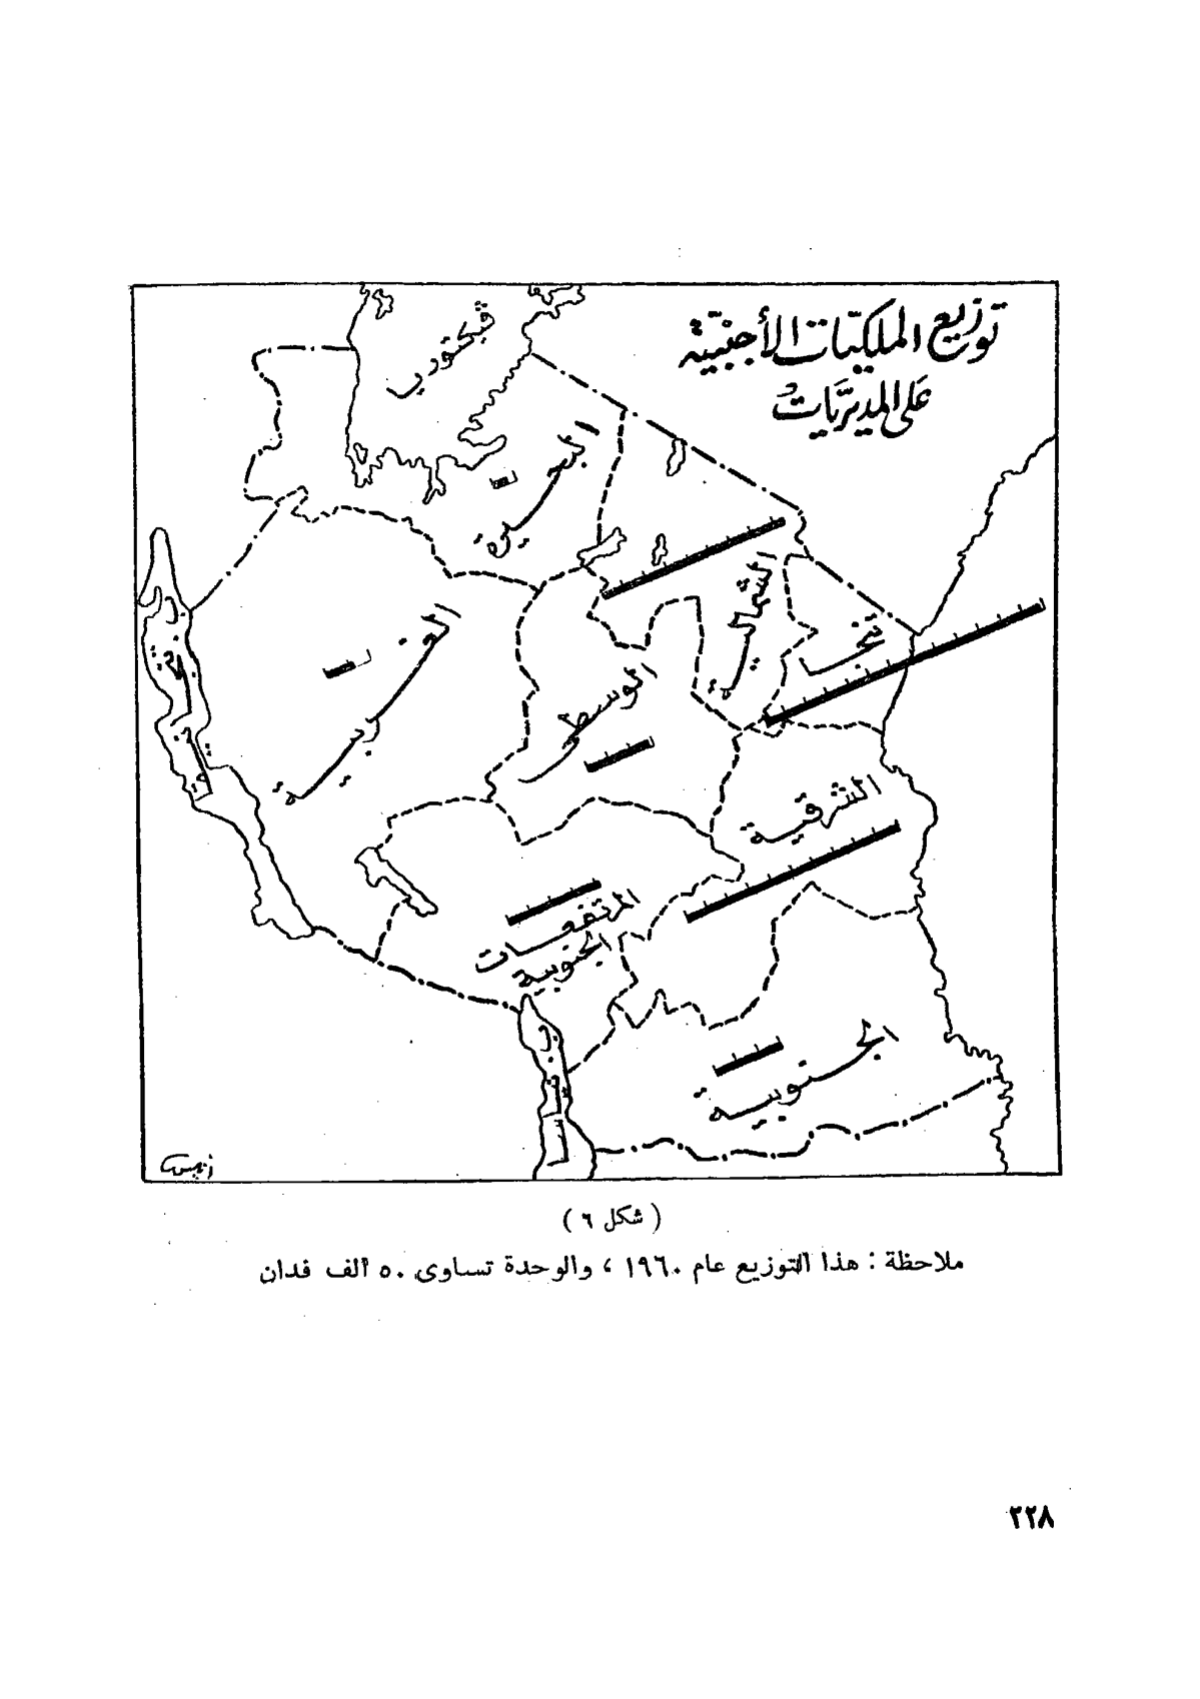 توزيع الملكيات الأجنبية
على المديريات
فيكتوريا
البحيرة
الغربية
الشمالية
تنجا
الوسطى
الشرقية
المرتفعات
الجنوبية
الجنوبية
( شكل ٦ )
ملاحظة : هذا التوزيع عام ١٩٦٠ ، والوحدة تساوى ٥٠ ألف فدان
٢٢٨